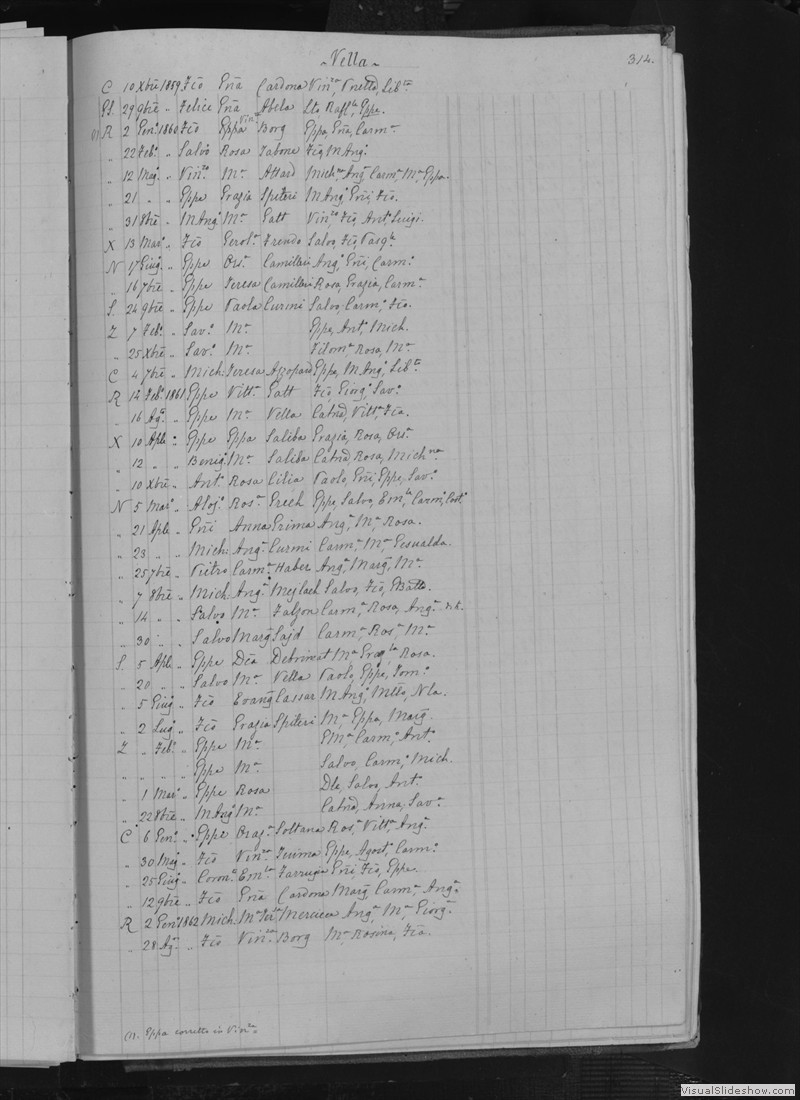 ~ Vella ~
314.
C 10 Xbre 1859 Fco Gña Cardona Vinza Pnetto, Libta
Pl. 29 9bre „ Felice Gña Abela Lto Rafla Eppe.
(1) R 2 Geno 1860 Fco Eppa Vinza Borg Eppa, Gña, Carma
„ 22 Febo „ Salvo Rosa Tabone Fco, M Anga
„ 12 Mago „ Vinzo Ma Attard Michna Anga Carma Ma Eppa.
„ 21 „ „ Eppe Grazia Spiteri M Anga Gni, Fca.
„ 31 8bre „ M Ango Ma Gatt Vinzo, Fco, Anto, Luigi.
X 13 Maro „ Fco Gerola Frendo Salvo, Fco, Pasqle
N 17 Giugo „ Eppe Orsa Camilleri Anga, Gni, Carma
„ 16 7bre „ Eppe Teresa Camilleri Rosa, Grazia, Carma
S. 24 9bre „ Eppe Paola Curmi Salvo, Carmo, Fca.
Z 7 Febo „ Savo Ma Eppa, Anto, Mich.
„ 25 Xbre „ Savo Ma Filoma Rosa, Ma
C 4 7bre „ Mich. Teresa Azzopardi Eppa, M Anga, Libta
R 14 Febo 1861 Eppe Vitta Gatt Fco, Giorgo, Savo
„ 16 Ago „ Eppe Ma Vella Catnã, Vitta, Fca.
X 10 Aple „ Eppe Eppa Saliba Grazia, Rosa, Orsa
„ 12 „ „ Benigo Ma Saliba Catnã, Rosa, Michna
„ 10 Xbre „ Anto Rosa Cilia Paolo, Gni, Eppe, Savo
N 5 Maro „ Alojo Rosa Grech Eppe, Salvo, Emla, Carmo, Costo
„ 21 Aple „ Gni Anna Grima Anga, Ma Rosa.
„ 23 „ „ Mich. Anga Curmi Carma, Ma, Gesualda.
„ 25 7bre „ Pietro Carma Haber Anga, Marga, Ma
„ 7 8bre „ Mich. Anga Mejlach Salvo, Fco, GBatta.
„ 14 „ „ Salvo Ma Falzon Carma, Rosa, Anga
„ 30 „ „ Salvo Marga Sajd Carma, Rosa, Ma
S. 5 Aple „ Eppe Dca Debrincat Ma, Grazla, Rosa.
„ 20 „ „ Salvo Ma Vella Paolo, Eppe, Tomo
„ 5 Giugo „ Fco Evanga Cassar M Anga, Mtto, Nla.
„ 2 Lugo „ Fco Grazia Spiteri Ma, Eppa, Marga.
Z „ Febo „ Eppe Ma GMa, Carmo, Anto.
„ „ „ „ Eppe Ma Salvo, Carmo, Mich.
„ 1 Maro „ Eppe Rosa Dla, Salvo, Anto.
„ 22 8bre „ M Ango Ma Catnã, Anna, Sava
C 6 Geno „ Eppe Oraga Soltana Rosa, Vitta, Anga.
„ 30 Mago „ Fco Vinza Zerima Eppe, Agost, Carmo
„ 25 Giugo „ Corono Emla Farrugia Gni, Fco, Eppe.
„ 12 9bre „ Fco Gña Cardona Marga, Carma, Anga
R 2 Geno 1862 Mich. Ma Tersa Mercieca Anga, Ma, Giorga.
„ 28 Ago „ Fco Vinza Borg Ma, Rosina, Fca.
(1). Eppa corretto in Vinza
VisualSlideshow.com